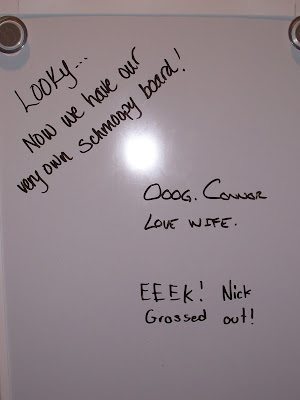 Looky...
Now we have our
very own schmoopy board!
Ooog. Connor
Love wife.
EEEK! Nick
Grossed out!